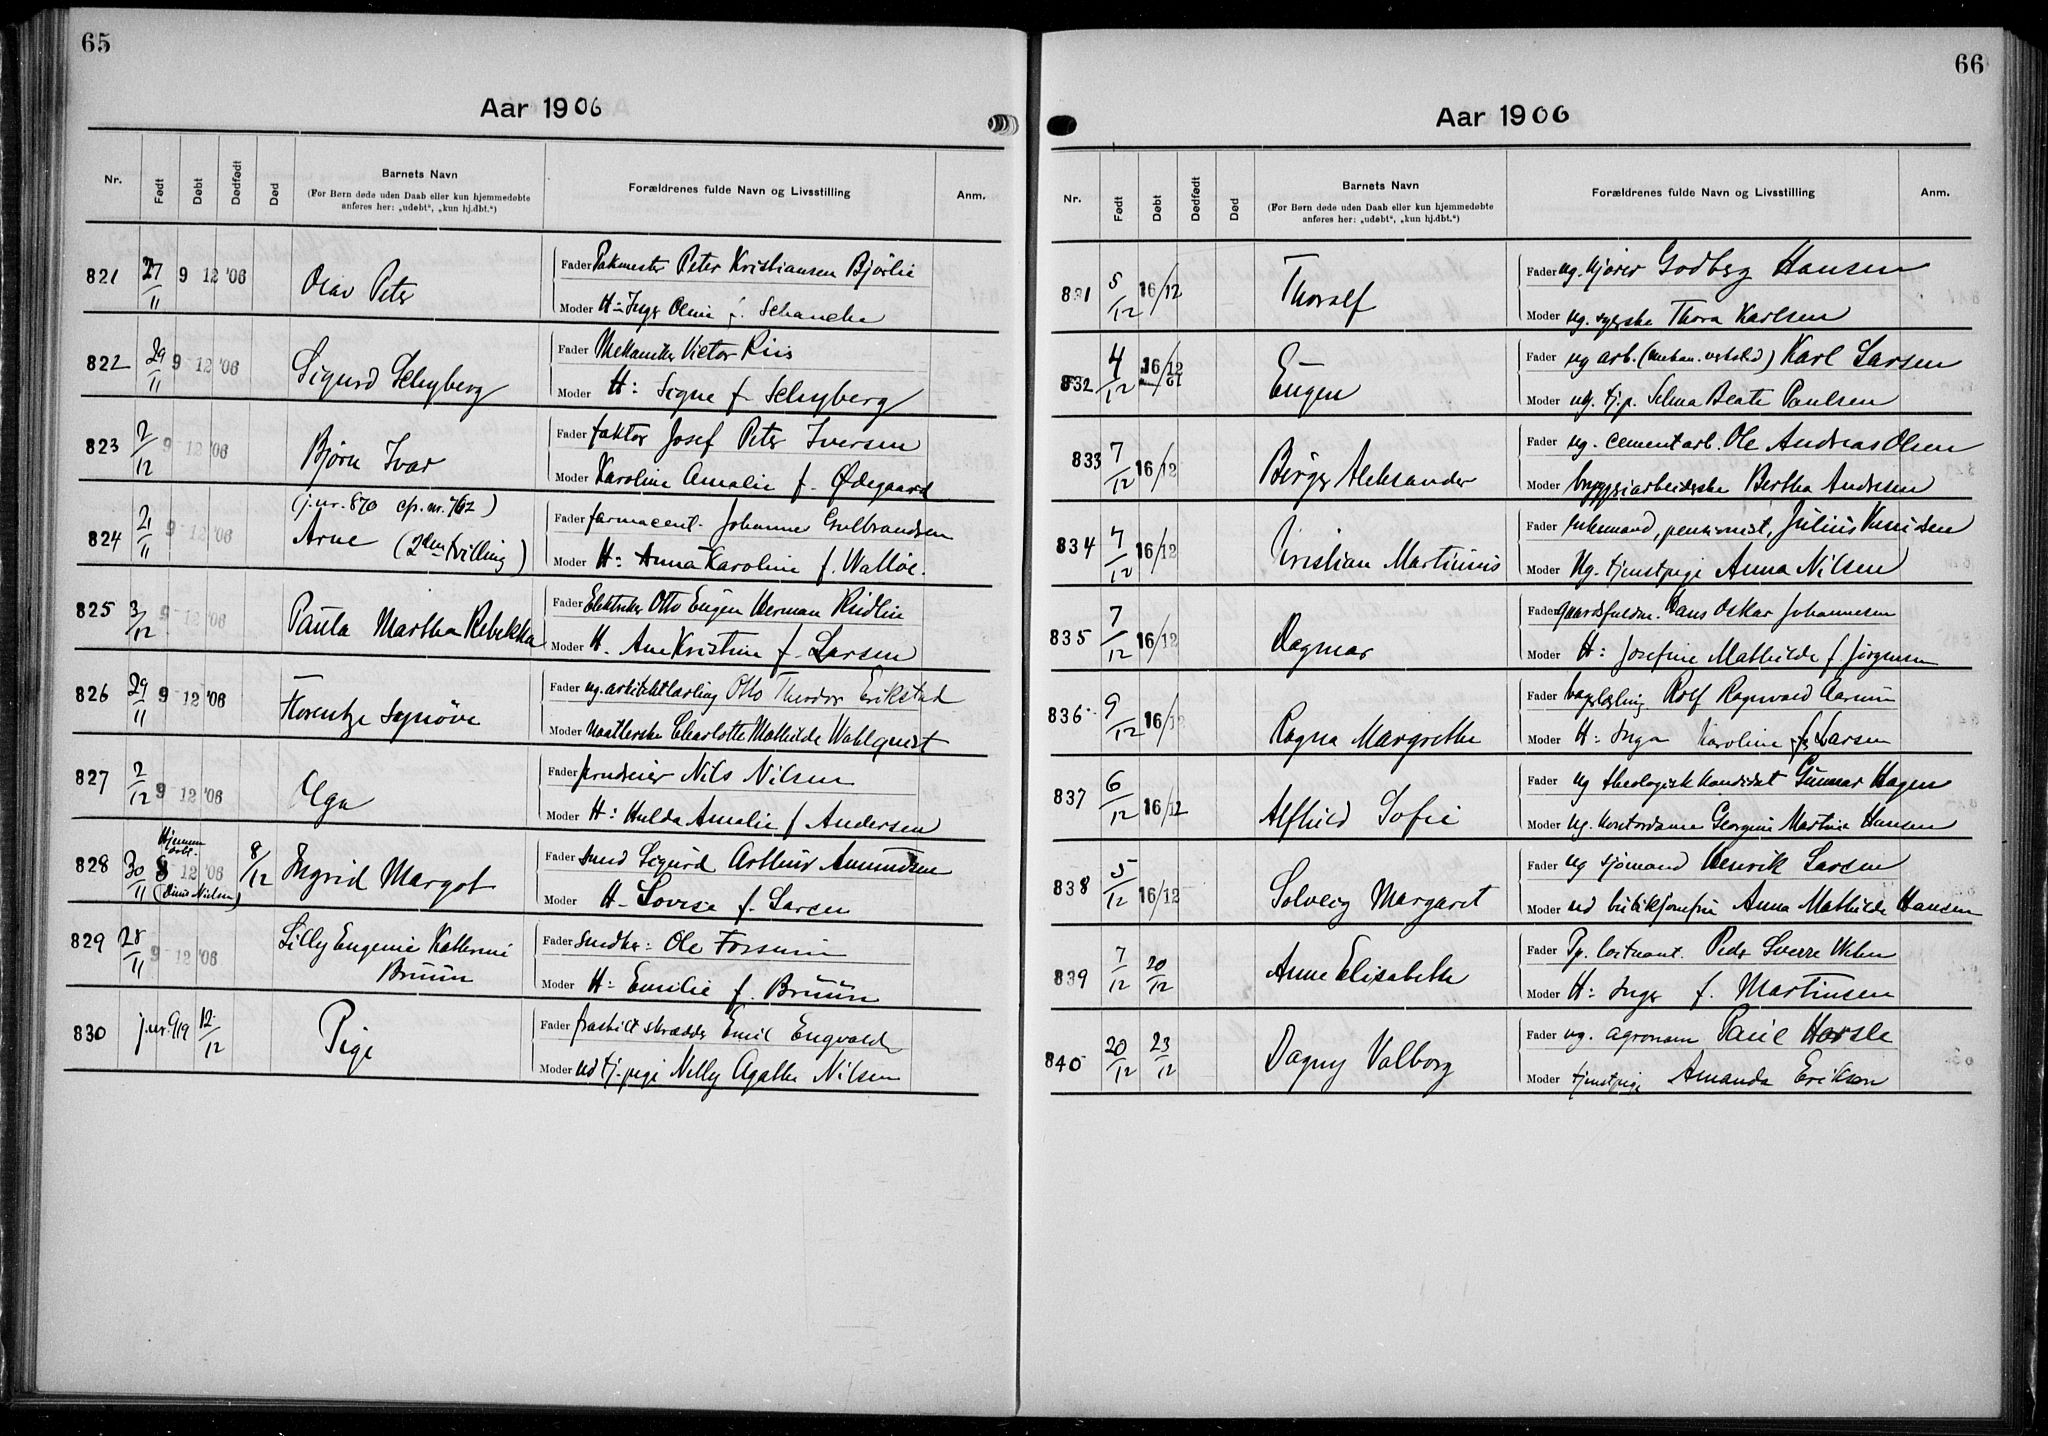 65
Aar 1906
Nr. Født Døbt Dødfødt Død Barnets Navn Forældrenes fulde Navn og Livsstilling Anm.
(For Børn døde uden Daab eller kun hjemmedøbte
anføres her: „udøbt“, „kun hj.dbt.“)
821 27/11 9 12 '06 Olav Peter
Fader Pakmester Peter Kristiansen Bjørlie
Moder H: Inger Oline f. Schancke
822 29/11 9 12 '06 Sigurd Schyberg
Fader Mekaniker Victor Riis
Moder H: Signe f. Schyberg
823 2/12 9 12 '06 Bjørn Ivar
Fader faktor Josef Peter Iversen
Moder Karoline Amalie f. Ødegaard
(j.nr. 870 cfr. nr. 762)
824 21/11 9 12 '06 Arne (2den tvilling)
Fader farmaceut. Johannes Gulbrandsen
Moder H: Anna Karoline f. Walløe.
825 3/12 9 12 '06 Paula Martha Rebekka
Fader Elektriker Otto Eugen Herman
Moder H. Ane Kristine f. Larsen
826 29/11 9 12 '06 Florentze Synøve
Fader ug. arkitektlærling Otto Theodor Erikstad
Moder Charlotte Mathilde Wahlquist
827 2/12 9 12 '06 Olga
Fader Nils Nilsen
Moder H: Hulda Amalie f. Andersen
Hjemme
døbt.
828 30/11 8 12 '06 8/12 Ingrid Margot
(Nielsen)
Fader smed Sigurd Arthur Amundsen
Moder H. Lovise f. Larsen
829 28/11 9 12 '06 Lilly Eugenie Katherine
Bruun
Fader snedker: Ole
Moder H: Emilie f. Bruun
830 j.nr. 919 12/12 Pige
Fader fraskilt skrædder Emil Engvald
Moder ud tj. pige Nelly Agathe Nilsen
66
Aar 1906
Nr. Født Døbt Dødfødt Død Barnets Navn Forældrenes fulde Navn og Livsstilling Anm.
(For Børn døde uden Daab eller kun hjemmedøbte
anføres her: „udøbt“, „kun hj.dbt.“)
831 5/12 16/12 Thoralf
Fader ug. kjører Godberg Hansen
Moder ug. syerske Thora Karlsen
832 4/12 16/12 Eugen
Fader ug arb. (mekan. verksted) Karl Larsen
Moder ug. tj.p. Selma Beate Paulsen
833 7/12 16/12 Børge Aleksander
Fader ug. cementarb. Ole Andreas Olsen
Moder bryggeriarbeiderske Bertha Andresen
834 7/12 16/12 Kristian Martinius
Fader enkemand, pensionist, Julius Knudsen
Moder Ug. tjenstpige Anna Nilsen
835 7/12 16/12 Dagmar
Fader gaardsfuldm. Hans Oskar Johannesen
Moder H: Josefine Mathilde f. Jørgensen
836 9/12 16/12 Ragna Margrethe
Fader Rolf Ragnvald
Moder H: Inga Karoline f. Larsen
837 6/12 16/12 Alfhild Sofie
Fader ug theologisk kandidat Gunnar Hagen
Moder ug. kontordame Georgine Martine Hansen
838 5/12 16/12 Solveig Margaret
Fader ug sjømand Henrik Larsen
Moder ud butikjomfru Anna Mathilde Hansen
839 7/12 20/12 Anne Elisabeth
Fader Pr. løitnant. Peder Sverre
Moder H: Inger f. Martinsen
840 20/12 23/12 Dagny Valborg
Fader ug. agronom Paul Horsle
Moder tjenstpige Amanda Erikson